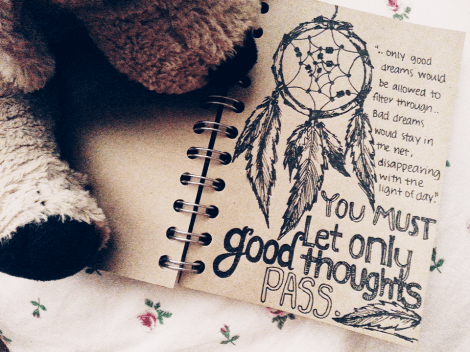 "... only good
dreams would
be allowed to
filter through...
Bad dreams
would stay in
the net,
disappearing
with the
light of day."
YOU MUST
Let only
good thoughts
PASS.